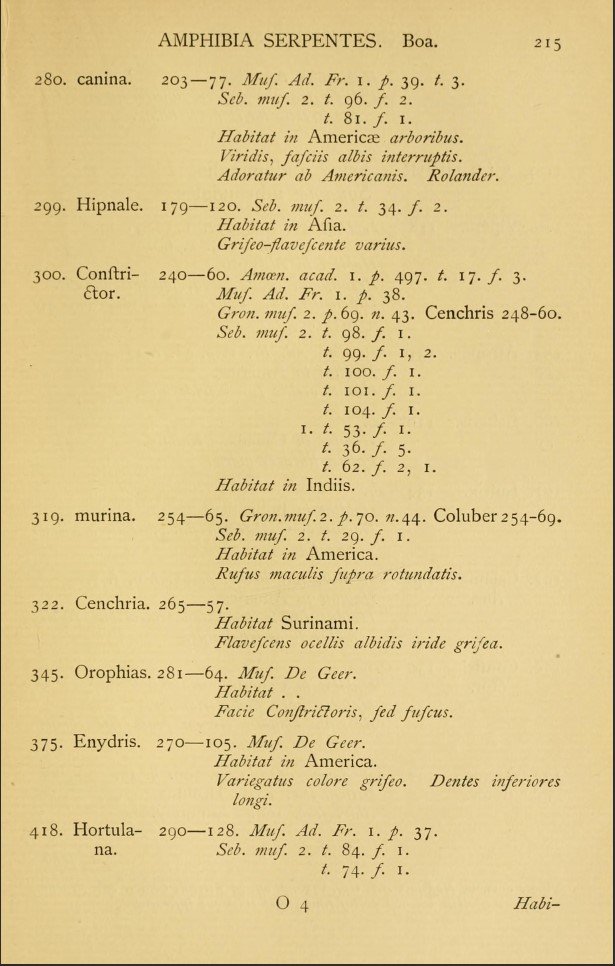 AMPHIBIA SERPENTES. Boa. 215
280. canina. 203—77. Muſ. Ad. Fr. 1. p. 39. t. 3.
Seb. muſ. 2. t. 96. f. 2.
t. 81. f. 1.
Habitat in Americæ arboribus.
Viridis, faſciis albis interruptis.
Adoratur ab Americanis. Rolander.
299. Hipnale. 179—120. Seb. muſ. 2. t. 34. f. 2.
Habitat in Aſia.
Griſeo-flaveſcente varius.
300. Conſtri- 240—60. Amœn. acad. 1. p. 497. t. 17. f. 3.
ctor. Muſ. Ad. Fr. 1. p. 38.
Gron. muſ. 2. p. 69. n. 43. Cenchris 248-60.
Seb. muſ. 2. t. 98. f. 1.
t. 99. f. 1, 2.
t. 100. f. 1.
t. 101. f. 1.
t. 104. f. 1.
1. t. 53. f. 1.
t. 36. f. 5.
t. 62. f. 2, 1.
Habitat in Indiis.
319. murina. 254—65. Gron. muſ. 2. p. 70. n. 44. Coluber 254-69.
Seb. muſ. 2. t. 29. f. 1.
Habitat in America.
Rufus maculis ſupra rotundatis.
322. Cenchria. 265—57.
Habitat Surinami.
Flaveſcens ocellis albidis iride griſea.
345. Orophias. 281—64. Muſ. De Geer.
Habitat . .
Facie Conſtrictoris, ſed fuſcus.
375. Enydris. 270—105. Muſ. De Geer.
Habitat in America.
Variegatus colore griſeo. Dentes inferiores
longi.
418. Hortula- 290—128. Muſ. Ad. Fr. 1. p. 37.
na. Seb. muſ. 2. t. 84. f. 1.
t. 74. f. 1.
O 4 Habi-